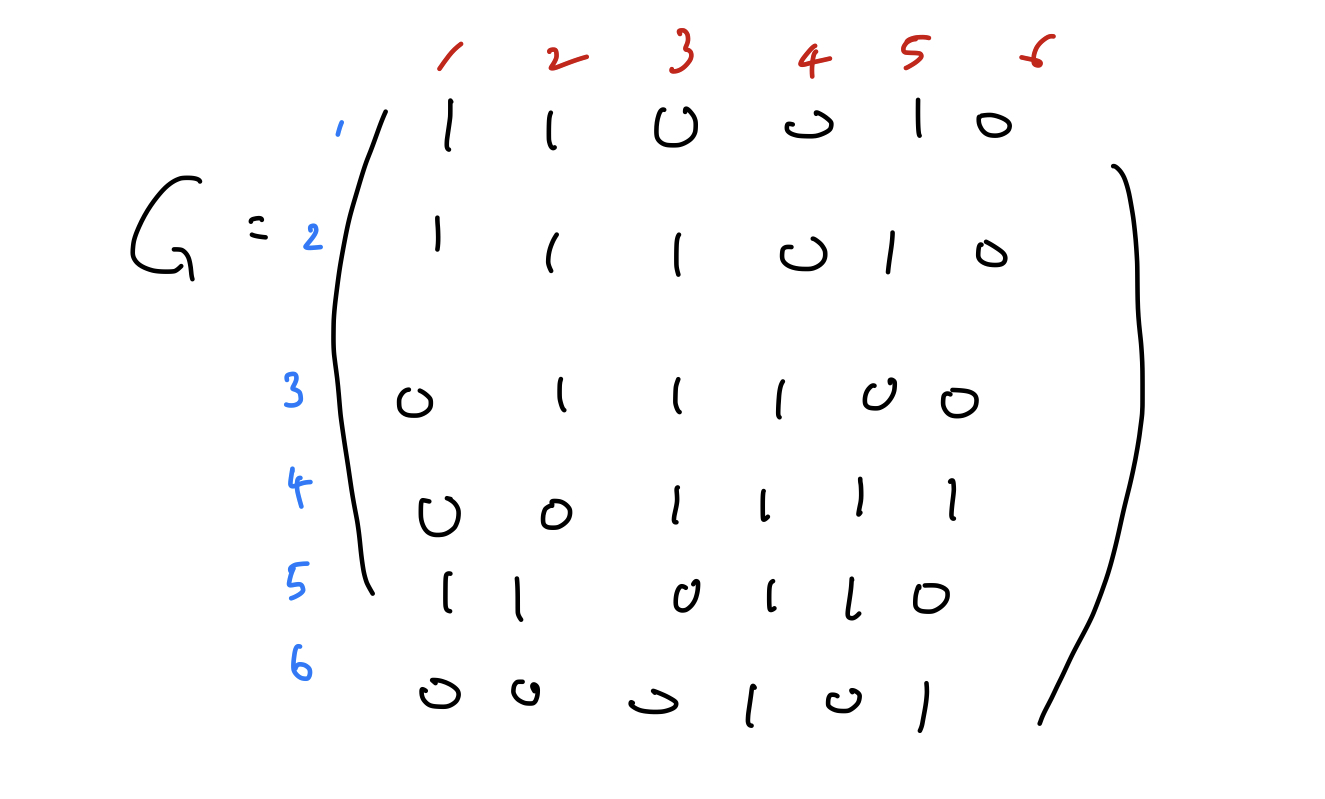 1 2 3 4 5 6
1 1 1 0 0 1 0
G = 2 1 1 1 0 1 0
3 0 1 1 1 0 0
4 0 0 1 1 1 1
5 1 1 0 1 1 0
6 0 0 0 1 0 1